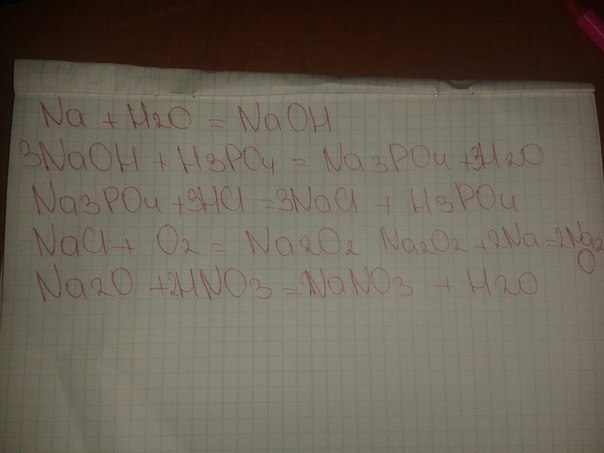 Na + H2O = NaOH
3NaOH + H3PO4 = Na3PO4 + 3H2O
Na3PO4 + 3HCl = 3NaCl + H3PO4
NaCl + O2 = Na2O2 Na2O2 + 2Na = 2Na2O
Na2O + 2HNO3 = 2NaNO3 + H2O